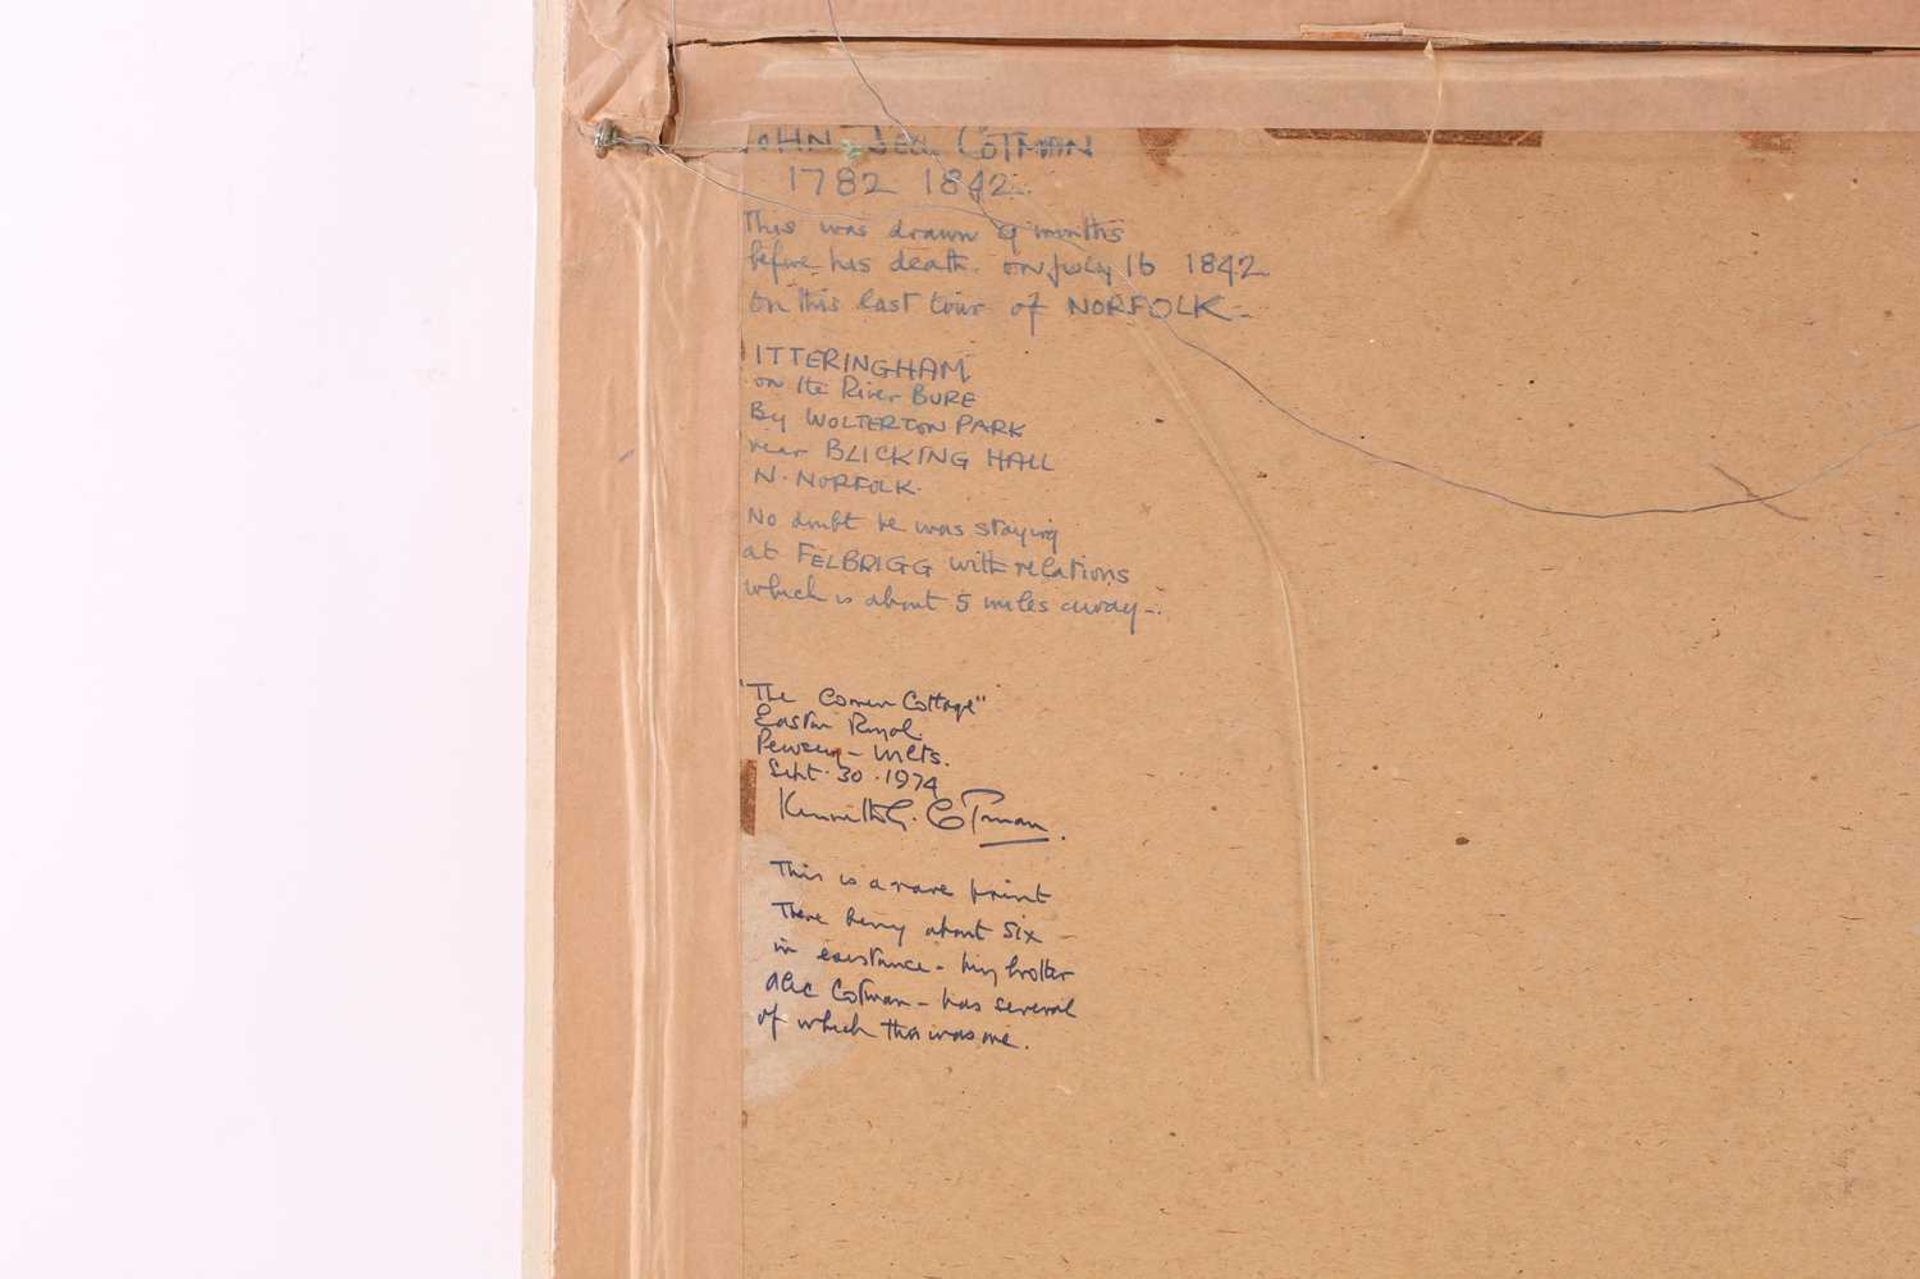 JOHN Sell COTMAN
1782 1842.
This was drawn 9 months
before his death. on July 16 1842
on this last tour of NORFOLK -
ITTERINGHAM
on the River BURE
By WOLTERTON PARK
near BLICKING HALL
N. NORFOLK.
No doubt he was staying
at FELBRIGG with relations
which is about 5 miles away -.
"The Corner Cottage"
Easton Royal.
Pewsey - Wilts.
Sept. 30. 1974
Kenneth G. Cotman.
This is a rare print
There being about six
in existance - my brother
Alec Cotman - has several
of which this was one.